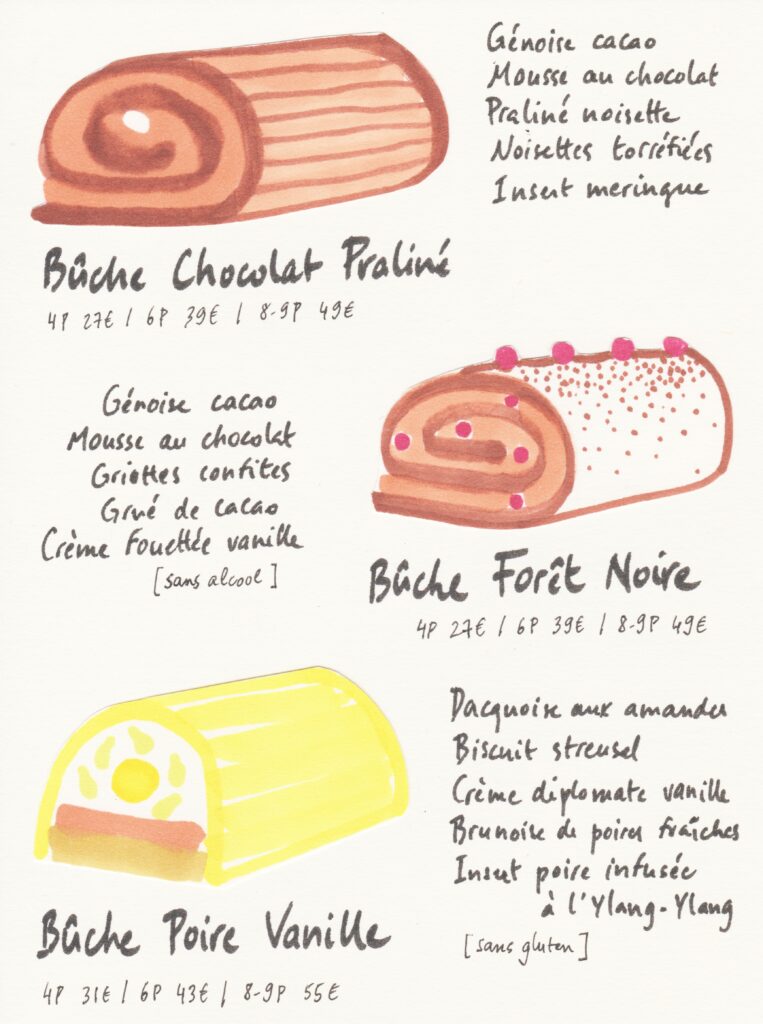 Génoise cacao
Mousse au chocolat
Praliné noisette
Noisettes torréfiées
Insert meringue
Bûche Chocolat Praliné
4P 27€ / 6P 39€ / 8-9P 49€
Génoise cacao
Mousse au chocolat
Griottes confites
Grué de cacao
Crème fouettée vanille
[sans alcool]
Bûche Forêt Noire
4P 27€ / 6P 39€ / 8-9P 49€
Dacquoise aux amandes
Biscuit streusel
Crème diplomate vanille
Brunoise de poires fraîches
Insert poire infusée
à l'Ylang-Ylang
[sans gluten]
Bûche Poire Vanille
4P 31€ / 6P 43€ / 8-9P 55€